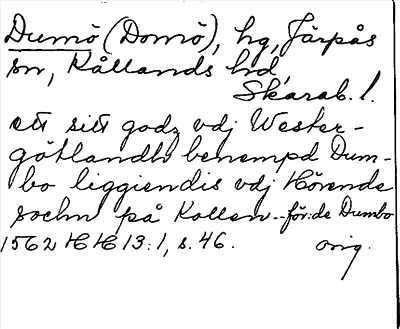 Dumö (Domö), hg, Järpås
sn, Kållands hd,
Skarab. l.
ett sitt godz vdj Wester-
götlandh benempd Dum-
bo liggiendis vdj Hörende
sochn på Kollen -- för:de Dumbo
1562 HH 13:1, s. 46. orig.